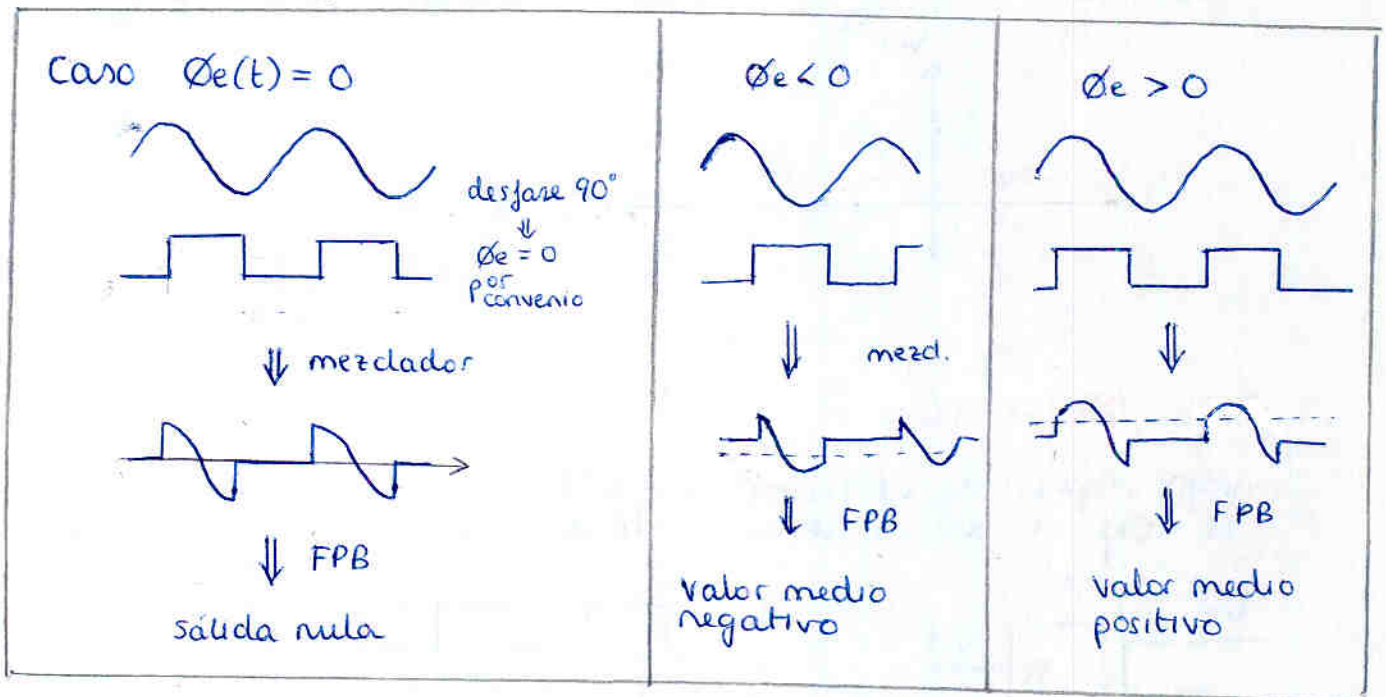 Caso Øe(t) = 0
desfase 90°
⇓
Øe = 0
por
convenio
⇓ mezclador
⇓ FPB
sálida nula
Øe < 0
⇓ mezcl.
⇓ FPB
valor medio
negativo
Øe > 0
⇓
⇓ FPB
valor medio
positivo